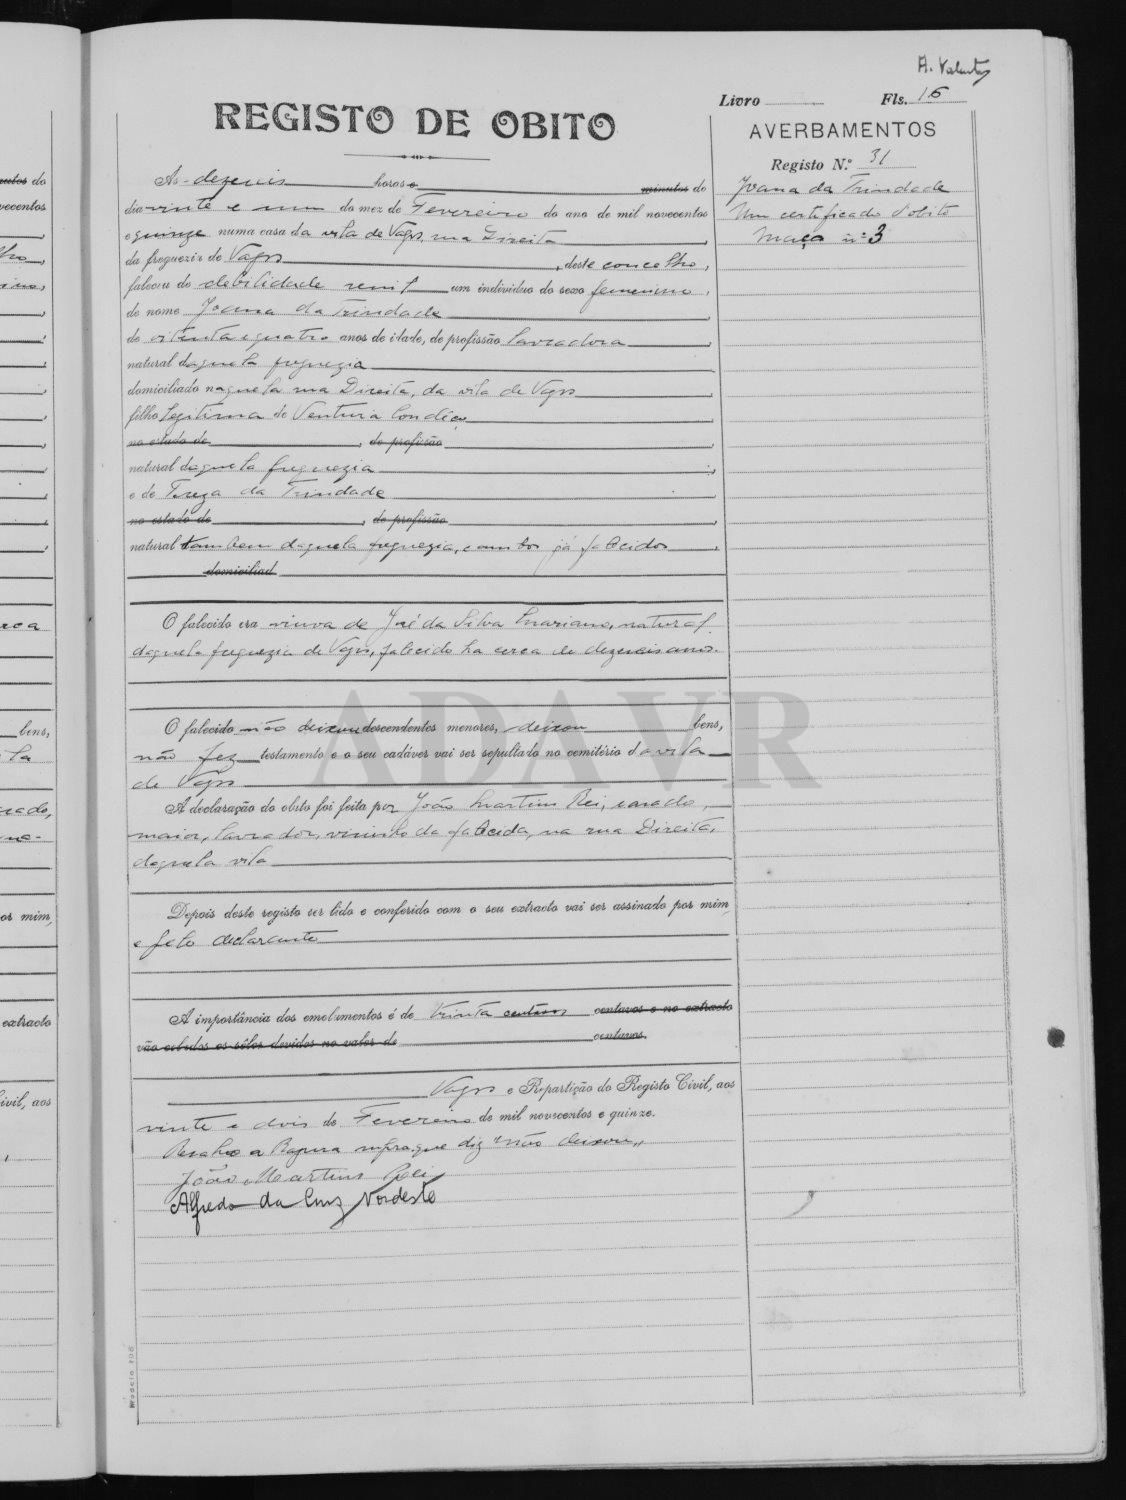 A. Valente
Livro Fls. 16
REGISTO DE OBITO
AVERBAMENTOS
Registo N.º 31
Joana da Trindade
Um certificado d'obito
Maço nº 3
As dezeseis horas e minutos do
dia vinte e um do mez de Fevereiro do ano de mil novecentos
e quinze numa casa da vila de Vagos, rua Direita,
da freguezia de Vagos, deste concelho,
faleceu de debilidade senil um individuo do sexo femenino,
de nome Joana da Trindade,
de oitenta e quatro anos de idade, de profissão lavradora,
natural daquela freguezia,
domiciliado naquela rua Direita, da vila de Vagos,
filho legitima de Ventura Condeço,
no estado de, de profissão,
natural daquela freguezia,
e de Tereza da Trindade,
no estado de, de profissão,
natural tambem daquela freguezia, e ambos já falecidos,
domiciliad
O falecido era viuva de José da Silva Mariano, natural
daquela freguezia de Vagos, falecido ha cerca de dezeseis anos.
O falecido não deixou descendentes menores, deixou bens,
não fez testamento e o seu cadáver vai ser sepultado no cemitério da vila
de Vagos
A declaração do obito foi feita por João Martins Rei, casado,
maior, lavrador, visinho da falecida, na rua Direita,
daquela vila
Depois deste registo ser lido e conferido com o seu extracto vai ser assinado por mim,
e pelo declarante
A importância dos emolumentos é de trinta centavos centavos e no extracto
vão colados os sêlos devidos no valor de centavos.
Vagos e Repartição do Registo Civil, aos
vinte e dois de Fevereiro de mil novecentos e quinze.
Resalvo a rasura supra que diz "não deixou"
João Martins Rei
Alfredo da Cruz Nordeste
Modelo 206
ADAVR